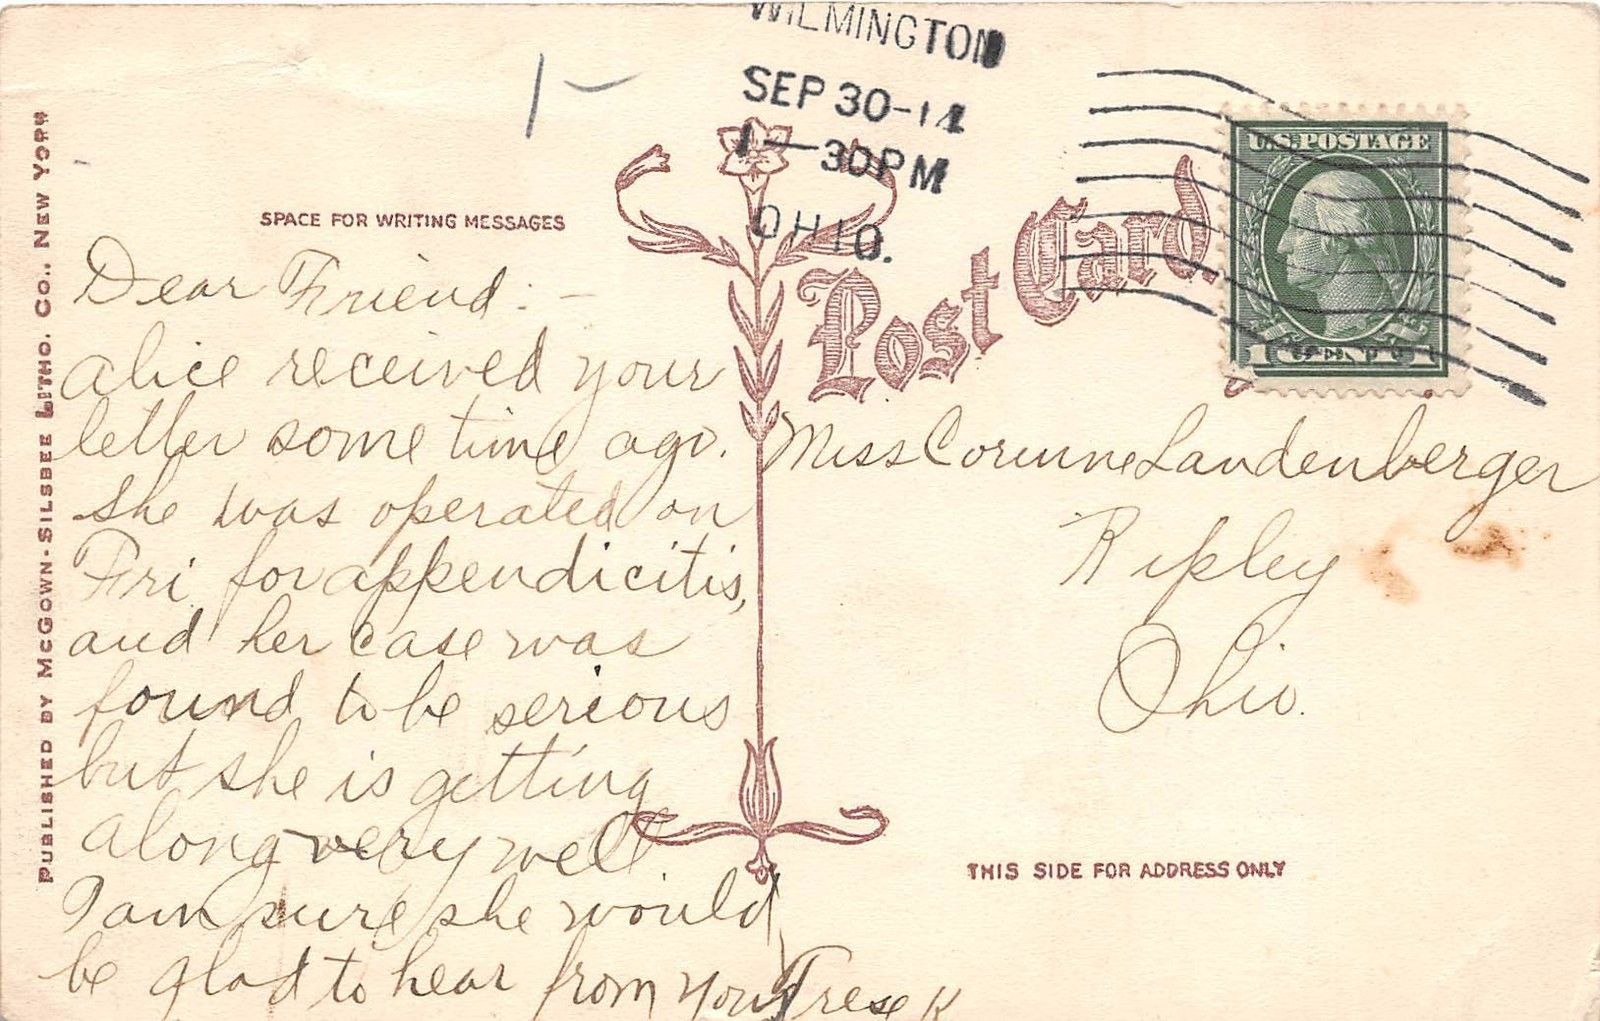 WILMINGTON
SEP 30
1-30PM
OHIO.
U.S. POSTAGE
SPACE FOR WRITING MESSAGES
Post Card
PUBLISHED BY McGOWN-SILSBEE LITHO. CO., NEW YORK
Dear Friend:-
Alice received your
letter some time ago.
She was operated on
Fri for appendicitis,
and her case was
found to be serious
but she is getting
along very well
I am sure she would
be glad to hear from you
Miss Corinne Landenberger
Ripley
Ohio.
THIS SIDE FOR ADDRESS ONLY